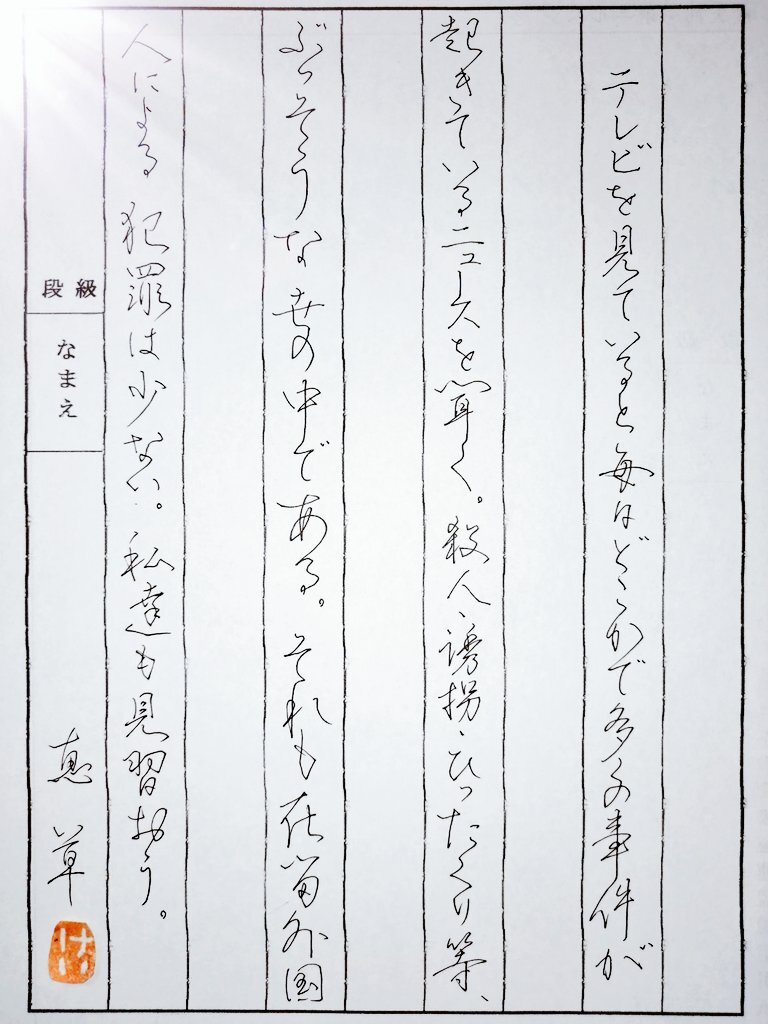 テレビを見ていると毎日どこかで多くの事件が
起きているニュースを聞く。殺人、誘拐、ひったくり等、
ぶっそうな世の中である。それも在留外国
人による犯罪は少ない。私達も見習おう。
段級
なまえ
恵草
けい